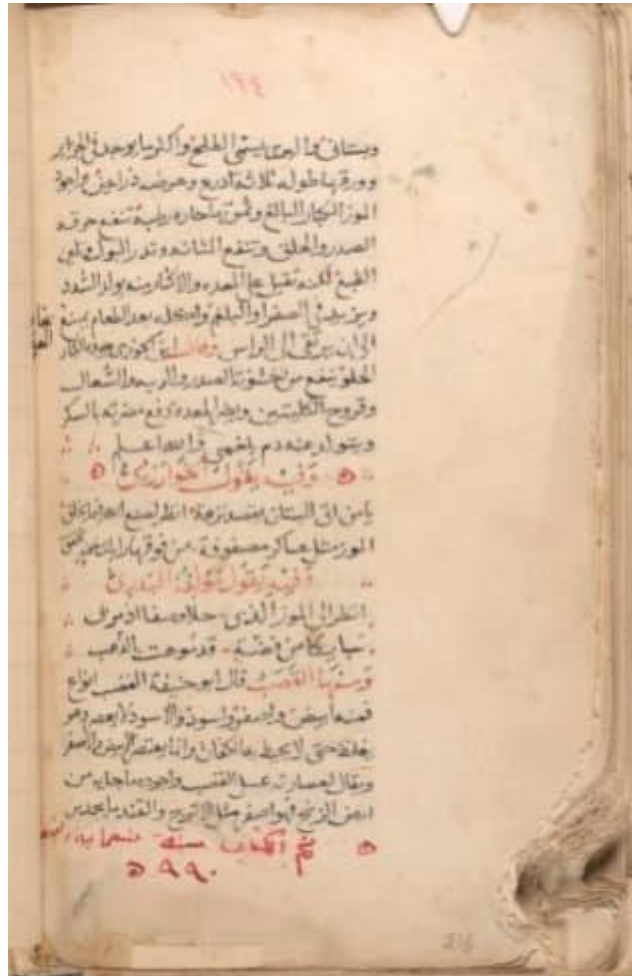 ١٩٤
وبستاني والبري يسمى الطلح واكثر ما يوجد في الجزاير
وورقها طوله ثلاثة اذرع وعرضه ذراعين واجود
الموز الكبار البالغ حاره رطبة تنفع حرقة
الصدر والحلق وتنفع المثانه وتدر البول وتلين
الطبع لكنه ثقيل على المعده والاكثار منه يولد السدد
ويزيد في الصفرا والبلغم بعد الطعام
الى الراس وقال ابن
الحلو ينفع من خشونة الصدر والريه والسعال
وقروح الكليتين المعده دفع مضرته بالسكر
ويتولد عنه دم بلغمي والله اعلم
وفيه يقول الخوارزمي
يا من اتى البستان نزهة انظر لصنع
الموز مثل عساكر مصفوفة من فوقها
وفيه يقول البدري
انظر الى الموز الذي حلا
سبايكا من فضة قد موهت بالذهب
ومنها القصب قال ابو حنيفة القصب انواع
فمنه ابيض واصفر واسود والاسود لا يعصر وهو
يغلظ حتى لا يحيط به الكفان وانما يعتصر الابيض والاصفر
ويقال لعصارته عسل القصب واجوده ما جا به من
ارض الزنج فهو اصفر مثل الاترج والقند ما يجمد من
تم الكتاب سنة
٩٩٠
216